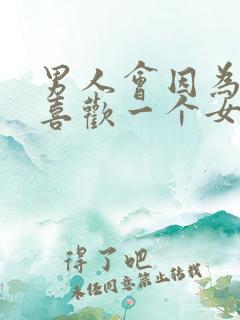 男人會因為
喜歡一个女
得了吧
未经同意禁止转载